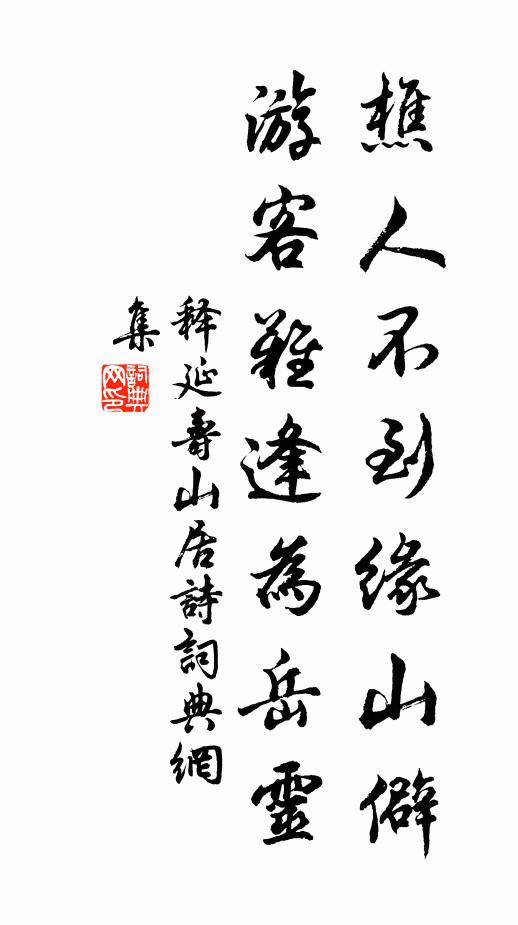 樵人不到緣山僻
游客難逢為岳靈
释延壽山居詩詞典網
集
詞典
网印